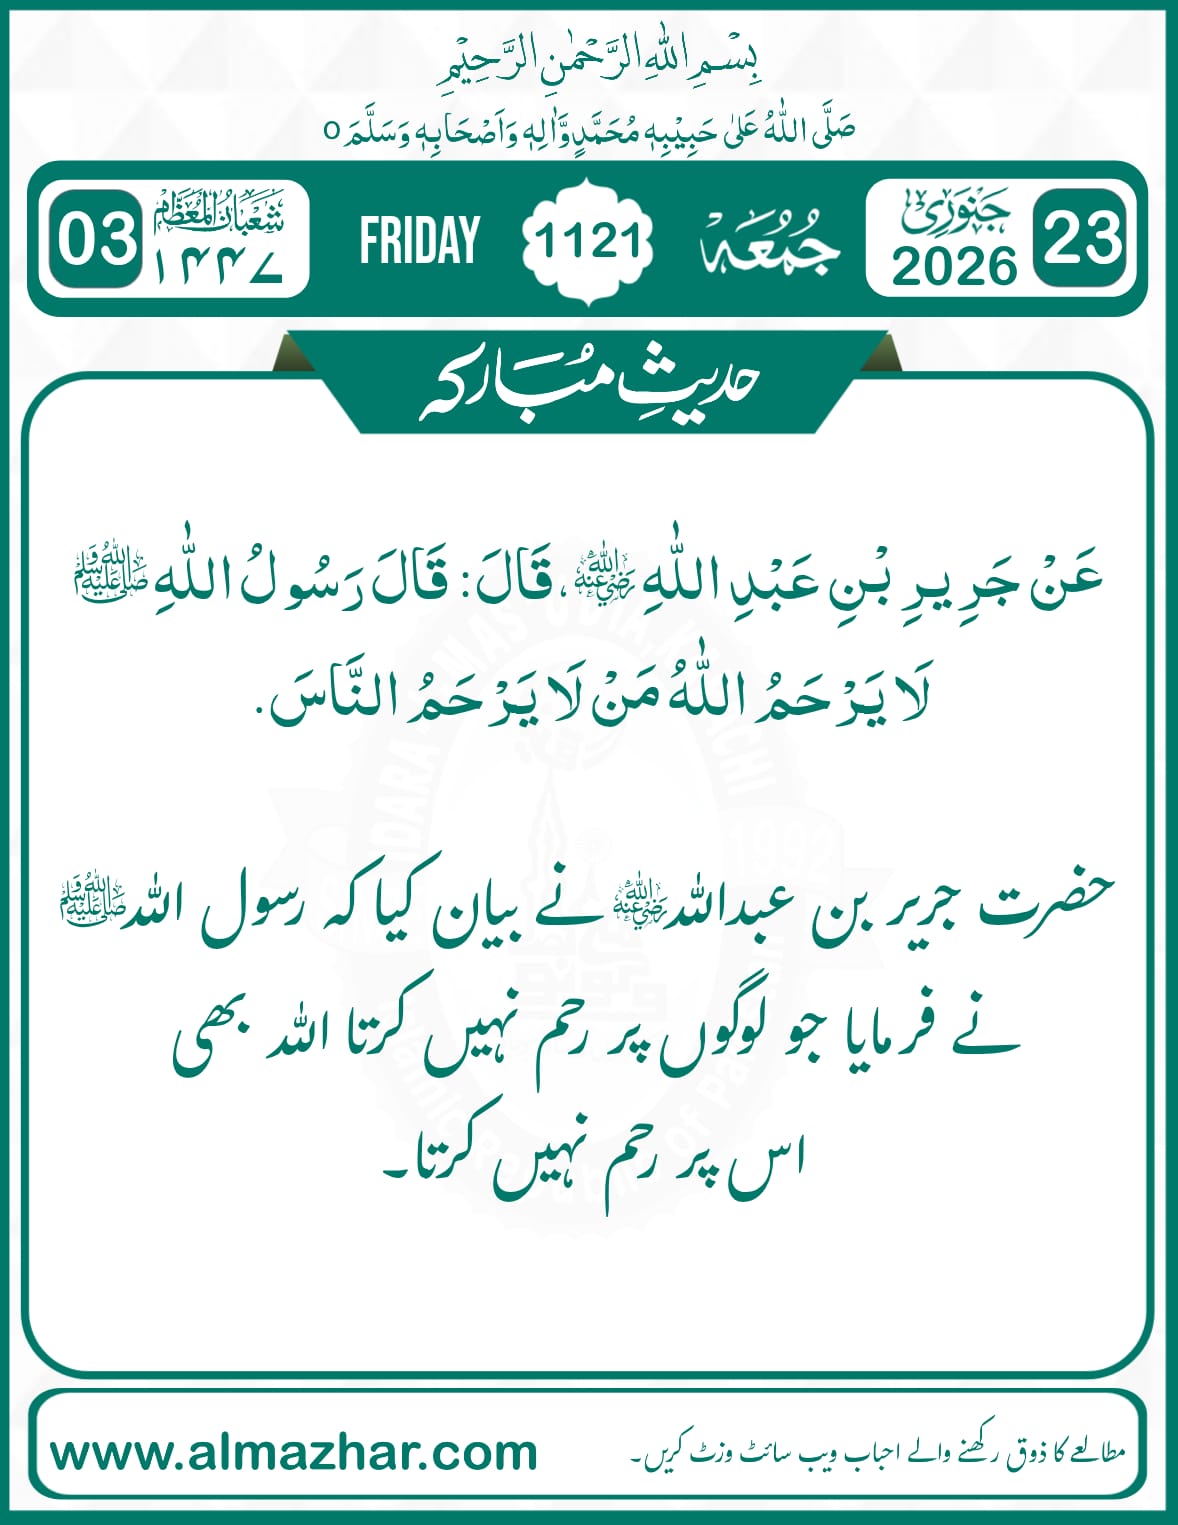 بِسْمِ اللهِ الرَّحْمٰنِ الرَّحِيْمِ
صَلَّى اللهُ عَلٰى حَبِيْبِهٖ مُحَمَّدٍ وَّاٰلِهٖ وَاَصْحَابِهٖ وَسَلَّمَ ٥
23 جَنْوَرِیْ 2026 جُمُعَہ 1121 FRIDAY شَعْبَانُ الْمُعَظَّمْ ۱۴۴۷ 03
حدیثِ مُبَارکہ
عَنْ جَرِيرِ بْنِ عَبْدِ اللّٰهِ رَضِيَ اللهُ عَنْهُ، قَالَ: قَالَ رَسُولُ اللّٰهِ ﷺ
لَا يَرْحَمُ اللّٰهُ مَنْ لَا يَرْحَمُ النَّاسَ.
حضرت جریر بن عبداللہ رَضِيَ اللهُ عَنْهُ نے بیان کیا کہ رسول اللہ ﷺ
نے فرمایا جو لوگوں پر رحم نہیں کرتا اللہ بھی
اس پر رحم نہیں کرتا۔
مطالعے کا ذوق رکھنے والے احباب ویب سائٹ وزٹ کریں۔
www.almazhar.com